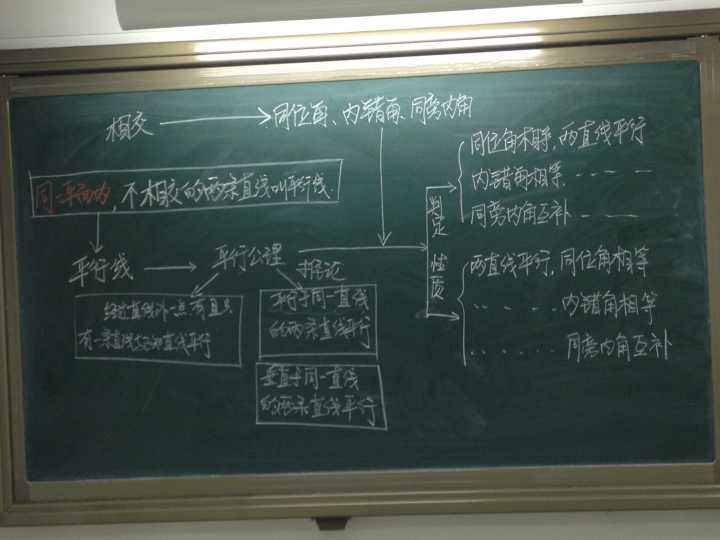 相交
同位角、内错角、同旁内角
同位角相等，两直线平行
内错角相等，- - - -
同旁内角互补 - - -
同一平面内，不相交的两条直线叫平行线.
判定
性质
平行线
平行公理
推论
两直线平行，同位角相等
· · · · · 内错角相等
· · · · · · 同旁内角互补
经过直线外一点有且只
有一条直线与已知直线平行
平行于同一直线
的两条直线平行
垂直于同一直线
的两条直线平行